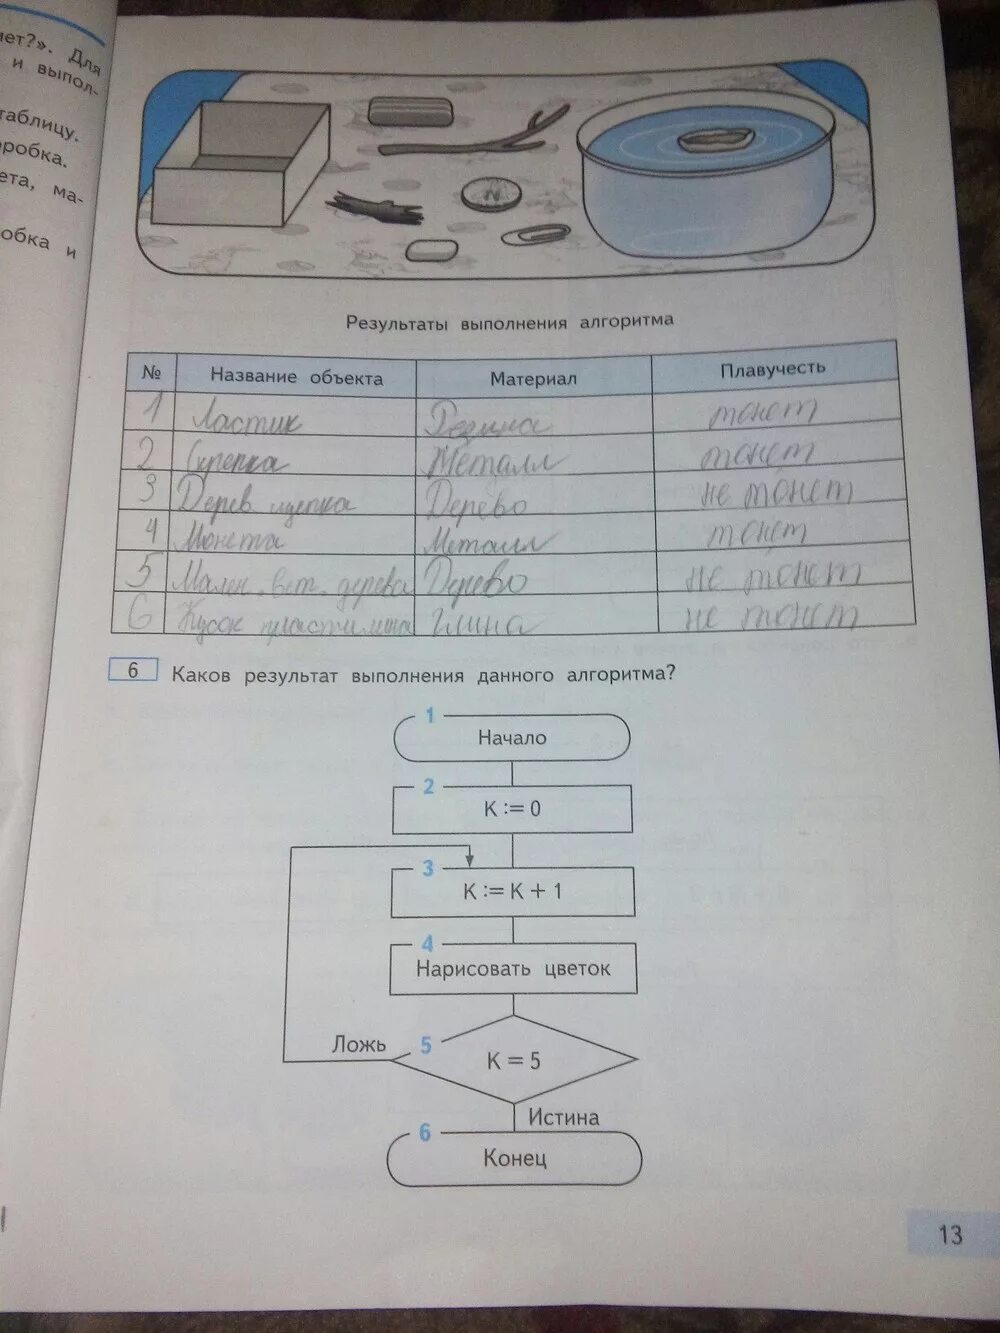 нет?». Для
и выпол-
таблицу.
оробка.
ета, ма-
обка и
Результаты выполнения алгоритма
№ Название объекта Материал Плавучесть
1 Ластик Резина тонет
2 Скрепка Металл тонет
3 Дерев щепка Дерево не тонет
4 Монета Металл тонет
5 Мален. вет. дерева Дерево не тонет
6 Кусок пластилина глина не тонет
6 Каков результат выполнения данного алгоритма?
1
Начало
2
K := 0
3
K := K + 1
4
Нарисовать цветок
Ложь 5
K = 5
Истина
6
Конец
13